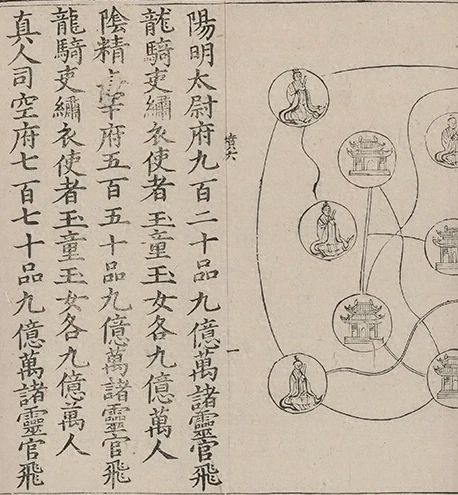 墳六
一
陽明太尉府九百二十品九億萬諸靈官飛
龍騎吏繡衣使者玉童玉女各九億萬人
陰精宰府五百五十品九億萬諸靈官飛
龍騎吏繡衣使者玉童玉女各九億萬人
真人司空府七百七十品九億萬諸靈官飛